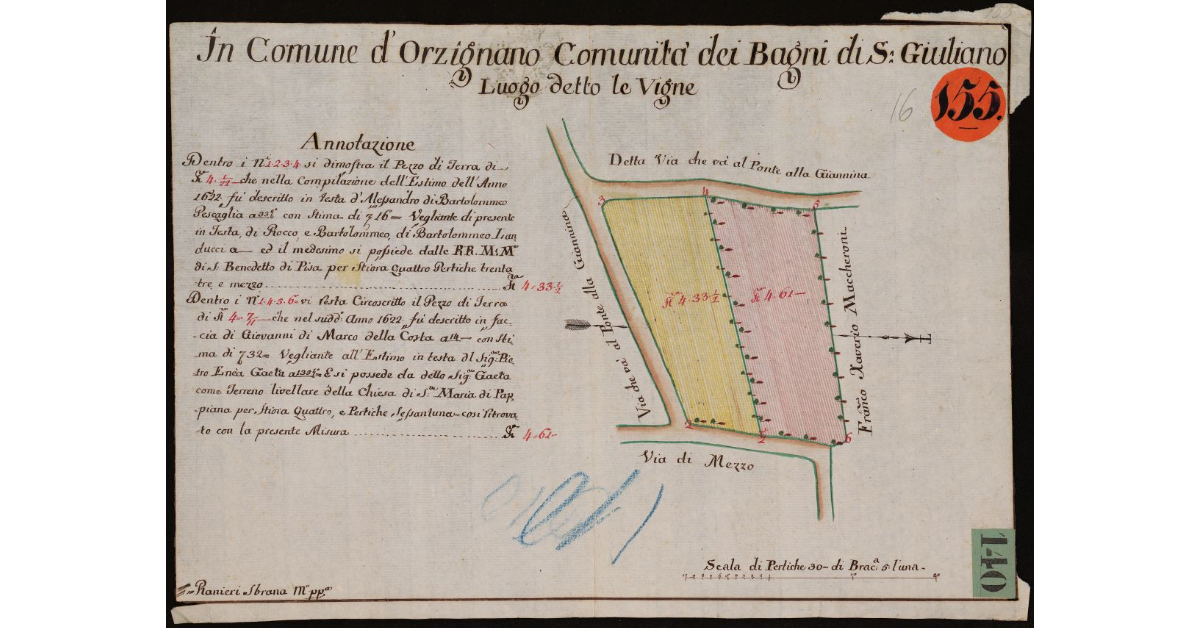 In Comune d'Orzignano Comunità dei Bagni di S: Giuliano
Luogo detto le Vigne
155.
16
Annotazione
Dentro i Nⁱ 1·2·3·4 si dimostra il Pezzo di Terra di
che nella Compilazione dell'Estimo dell'Anno
1622 fù descritto in testa d'Alessandro di Bartolommeo
Pescaglia a con Stima di 16 = Vegliante di presente
in Testa, di Rocco, e Bartolommeo, di Bartolommeo Lan
ducci a — ed il medesimo si possiede dalle RR. M: Mᵉ
di S. Benedetto di Pisa per Stiora Quattro Pertiche trenta
tre e mezzo Stᵃ 4·33½
Dentro i Nⁱ 1·4·5·6 vi resta Circoscritto il Pezzo di Terra
di Stᵃ 4 che nel sudd. Anno 1622 fù descritto in fac
cia di Giovanni di Marco della Costa a — con Sti
ma di 32 = Vegliante all'Estimo in testa dl Sig: Pie
tro Enea Gaeta a E si possede da detto Sig: Gaeta
come Terreno livellare della Chiesa di S. Maria di Pap
piana per Stiora Quattro, e Pertiche Sessantuna = così ritrova
to con la presente Misura St 4·61—
Detta Via che và al Ponte alla Giannina
Via che và al Ponte alla Giannina
3
4
5
Stᵃ 4.33½
Stᵃ 4·61—
Franco Xaverio Maccheroni
2
1
6
Via di Mezzo
Scala di Pertiche 30 = di Bracᵃ 5 l'una =
Ranieri Sbrana Mº ppº
140